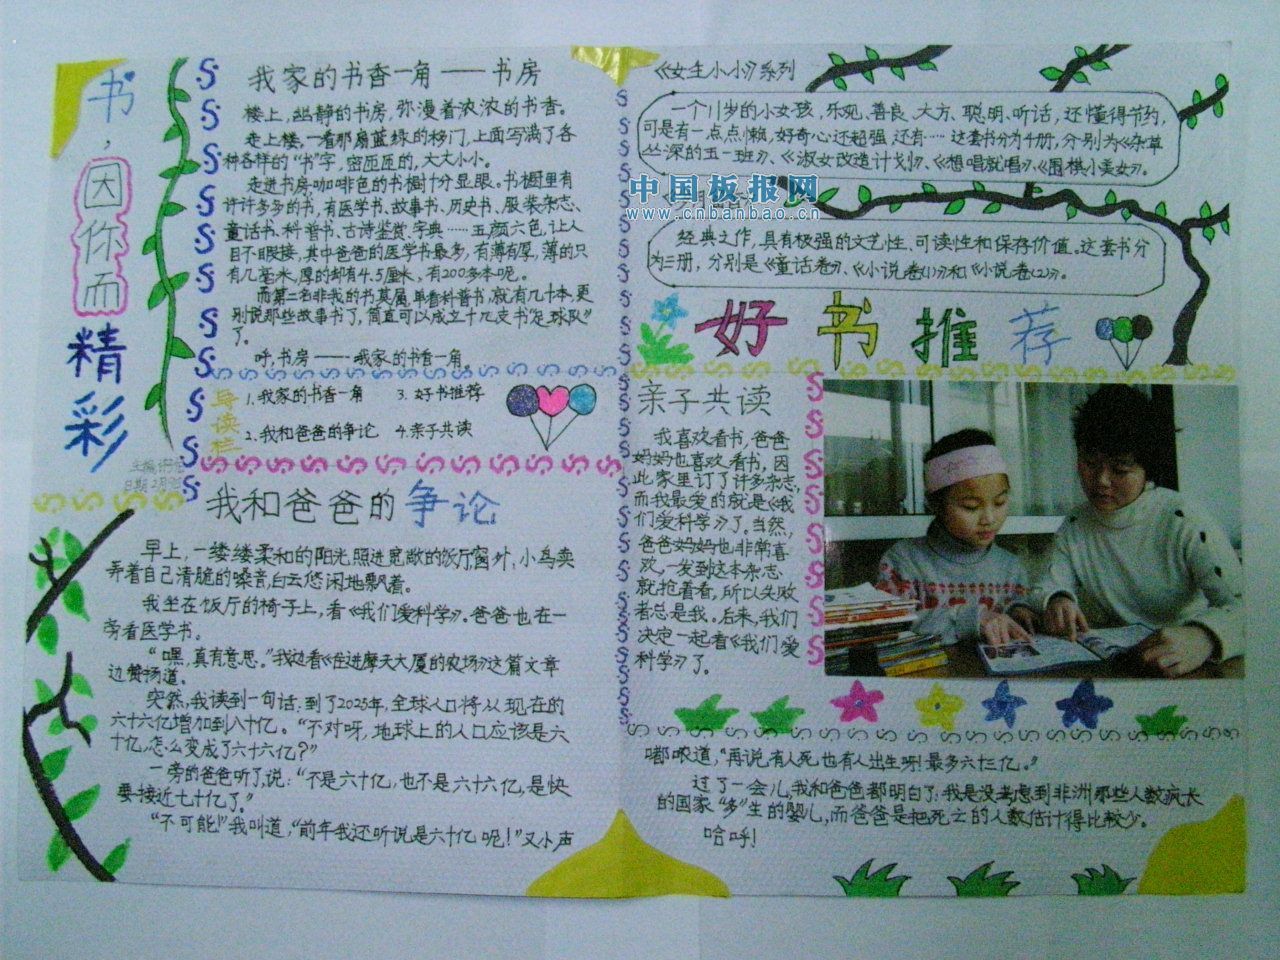 书，
因你而
精彩
日期
我家的书香一角——书房
楼上，幽静的书房，弥漫着浓浓的书香。
走上楼，一看那扇蓝绿的移门，上面写满了各
种各样的“书”字，密密匝匝的，大大小小。
走进书房咖啡色的书橱十分显眼。书橱里有
许许多多的书，有医学书、故事书、历史书、服装杂志、
童话书、科普书、古诗鉴赏、字典……五颜六色，让人
目不暇接，其中爸爸的医学书最多，有薄有厚，薄的只
有几毫米，厚的却有4.5厘米，有200多本呢。
而第二名非我的书莫属，单看科普书，就有几十本，更
别说那些故事书了，简直可以成立十几支书“足球队”
了。
呼，书房——我家的书香一角。
导读栏
1.我家的书香一角 3.好书推荐
2.我和爸爸的争论 4.亲子共读
我和爸爸的争论
早上，一缕缕柔和的阳光照进宽敞的饭厅，窗外，小鸟卖
弄着自己清脆的嗓音，白云悠闲地飘着。
我坐在饭厅的椅子上，看《我们爱科学》。爸爸也在一
旁看医学书。
“嘿，真有意思。”我边看《在进摩天大厦的农场》这篇文章
边赞扬道。
突然，我读到一句话：到了2025年，全球人口将从现在的
六十六亿增加到八十亿。“不对呀，地球上的人口应该是六
十亿，怎么变成了六十六亿？”
一旁的爸爸听了，说：“不是六十亿，也不是六十六亿，是快
要接近七十亿了。”
“不可能！”我叫道，“前年我还听说是六十亿呢！”又小声
《女生小小》系列
一个11岁的小女孩，乐观、善良、大方、聪明、听话，还懂得节约，
可是有一点点懒，好奇心还超强，还有……这套书分为4册，分别为《杂草
丛深的五一班》、《淑女改造计划》、《想唱就唱》、《围棋小美女》。
中国板报网
www.cnbanbao.cn
经典之作，具有极强的文艺性、可读性和保存价值。这套书分
为三册，分别是《童话卷》、《小说卷(1)》和《小说卷(2)》。
好书推荐
亲子共读
我喜欢看书，爸爸
妈妈也喜欢看书，因
此家里订了许多杂志，
而我最爱的就是《我
们爱科学》了，当然，
爸爸妈妈也非常喜
欢，一发到这本杂志
就抢着看，所以失败
者总是我。后来，我们
决定一起看《我们爱
科学》了。
嘟哝道，“再说，有人死也有人出生呀！最多六十三亿。”
过了一会儿，我和爸爸都明白了：我是没考虑到非洲那些人数疯长
的国家“多”生的婴儿，而爸爸是把死亡的人数估计得比较少。
哈哈！